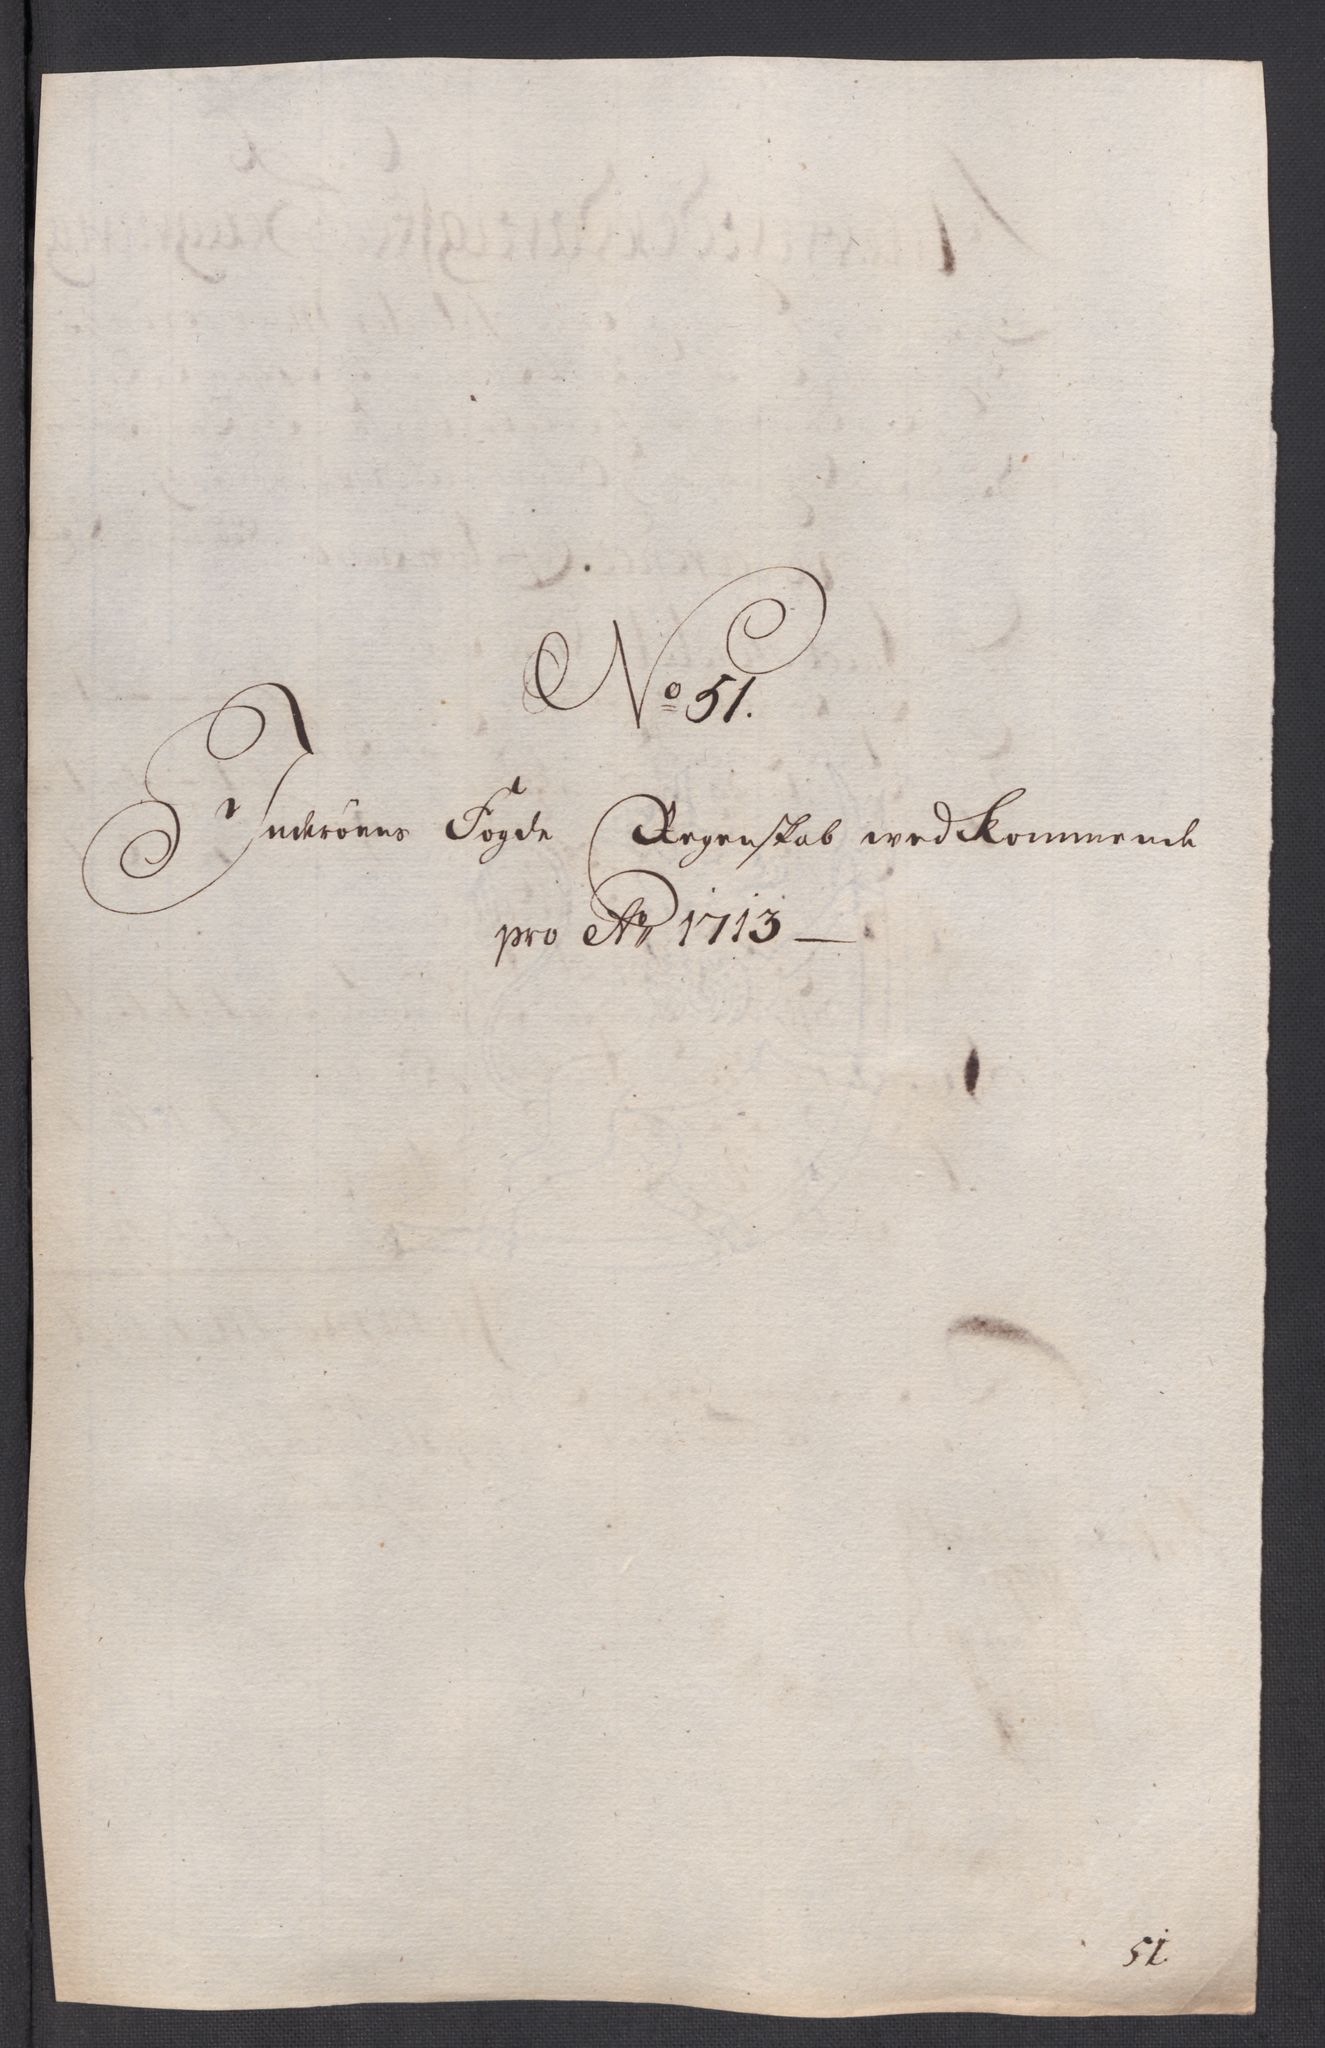 No 51.
Inderöens Fogde Regenskab wedkommende
pro Ao 1713
51.